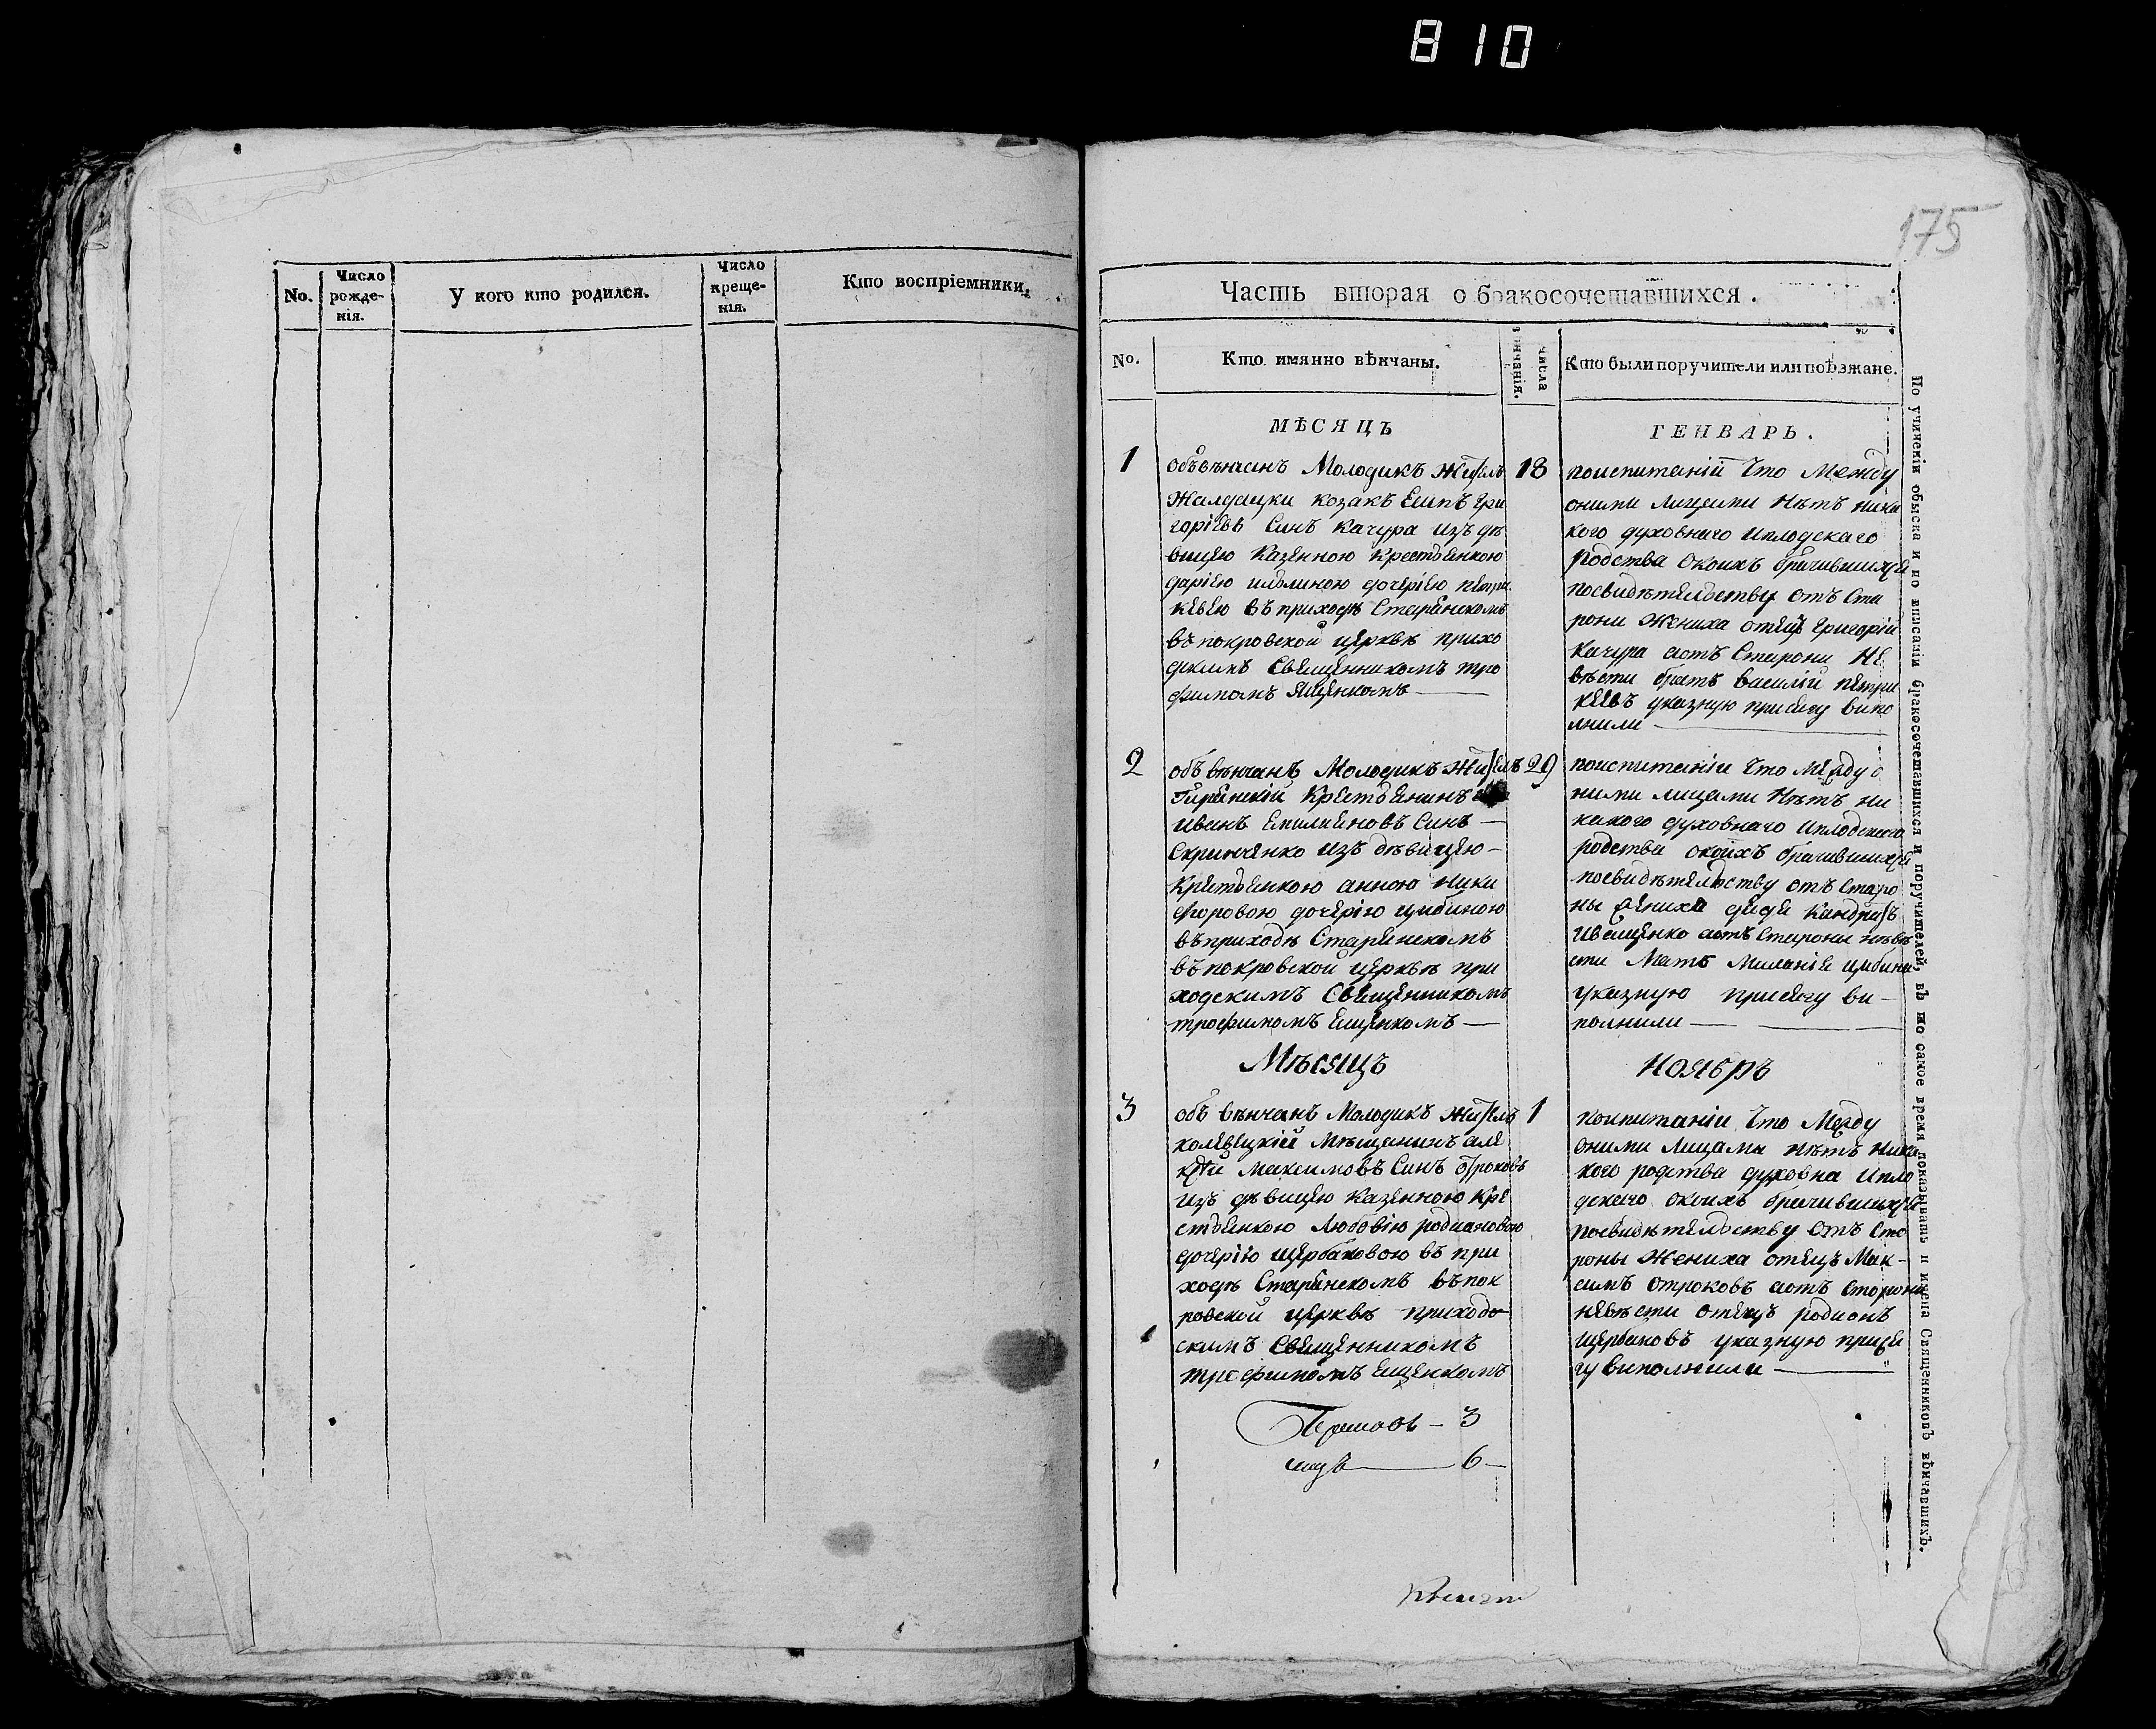 810
175
No.
Число рожде-нія.
У кого кто родился.
Число креще-нія.
Кто воспріемники,
Часть вторая о бракосочетавшихся.
No.
Кто имянно вѣнчаны.
Числа вѣнчанія.
Кто были поручители или поѣзжане.
МѢСЯЦЪ
ГЕНВАРЬ.
1
обвѣнчанъ Молодикъ жител
козакъ Есипъ Гри
горіевъ Синъ Качура изъ дѣ
вицею Казенною Крестьянкою
даріею дочерію петра
кевою въ приходѣ Старинскомъ
въ покровской церквѣ прихо
дскимъ Священникомъ тро
фимомъ Ященкомъ
18
поиспитаніи Что Между
оними лицами Нѣтъ ника
кого духовнаго иплодскаго
родства окоихъ брачившихся
посвидѣтелству отъ Ста
рони Жениха отецъ Григоріи
Качура аотъ Старони Не
вѣсти братъ василіи петри
кевъ указную присягу випо
лнили
2
объвѣнчанъ Молодикъ жителъ
Крестьянинъ
иванъ Емилиеновъ Синъ
Скрипченко изъ дѣвицею
Крестьянкою анною ники
форовою дочерію цибиною
въприходѣ Старинскомъ
въ покровской церквѣ при
ходскимъ Священникомъ
трофимомъ Ещенкомъ
29
поиспитаніи Что Между о
ними лицами Нѣтъ ни
какого духовнаго иплодскаго
родства окоихъ брачившихся
посвидѣтелству отъ Старо
ны жениха дядя Кандратъ
Иващенко аотъ Староны невѣ
сти Мать Миланія цибина
указную присягу ви-
полнили
Мѣсяцъ
Ноябръ
3
объвѣнчанъ Молодикъ жителъ
Мѣщанинъ але
ксѣй Максимовъ Синъ Отроковъ
изъ дѣвицею казенною Кре
стьянкою Любовію родиановою
дочерію щербаковою въ при
ходѣ Старинскомъ въ пок
ровской церквѣ приходо
скимъ Священникомъ
трофимомъ Ещенкомъ
1
поиспитаніи Что Между
оними Лицами нѣтъ ника
кого родства духовна ипло
дскаго окоихъ брачившихся
посвидѣтелству отъ Сто
роны Жениха отецъ Мак-
симъ Отроковъ аотъ сторони
невѣсти отецъ родионъ
щербаковъ указную прися
гу виполнили
Браковъ - 3
лицъ 6
По учиненіи обыска и по вписаніи бракосочетавшихся и поручителей, въ то самое время показывать и имена Священниковъ вѣнчавшихъ.